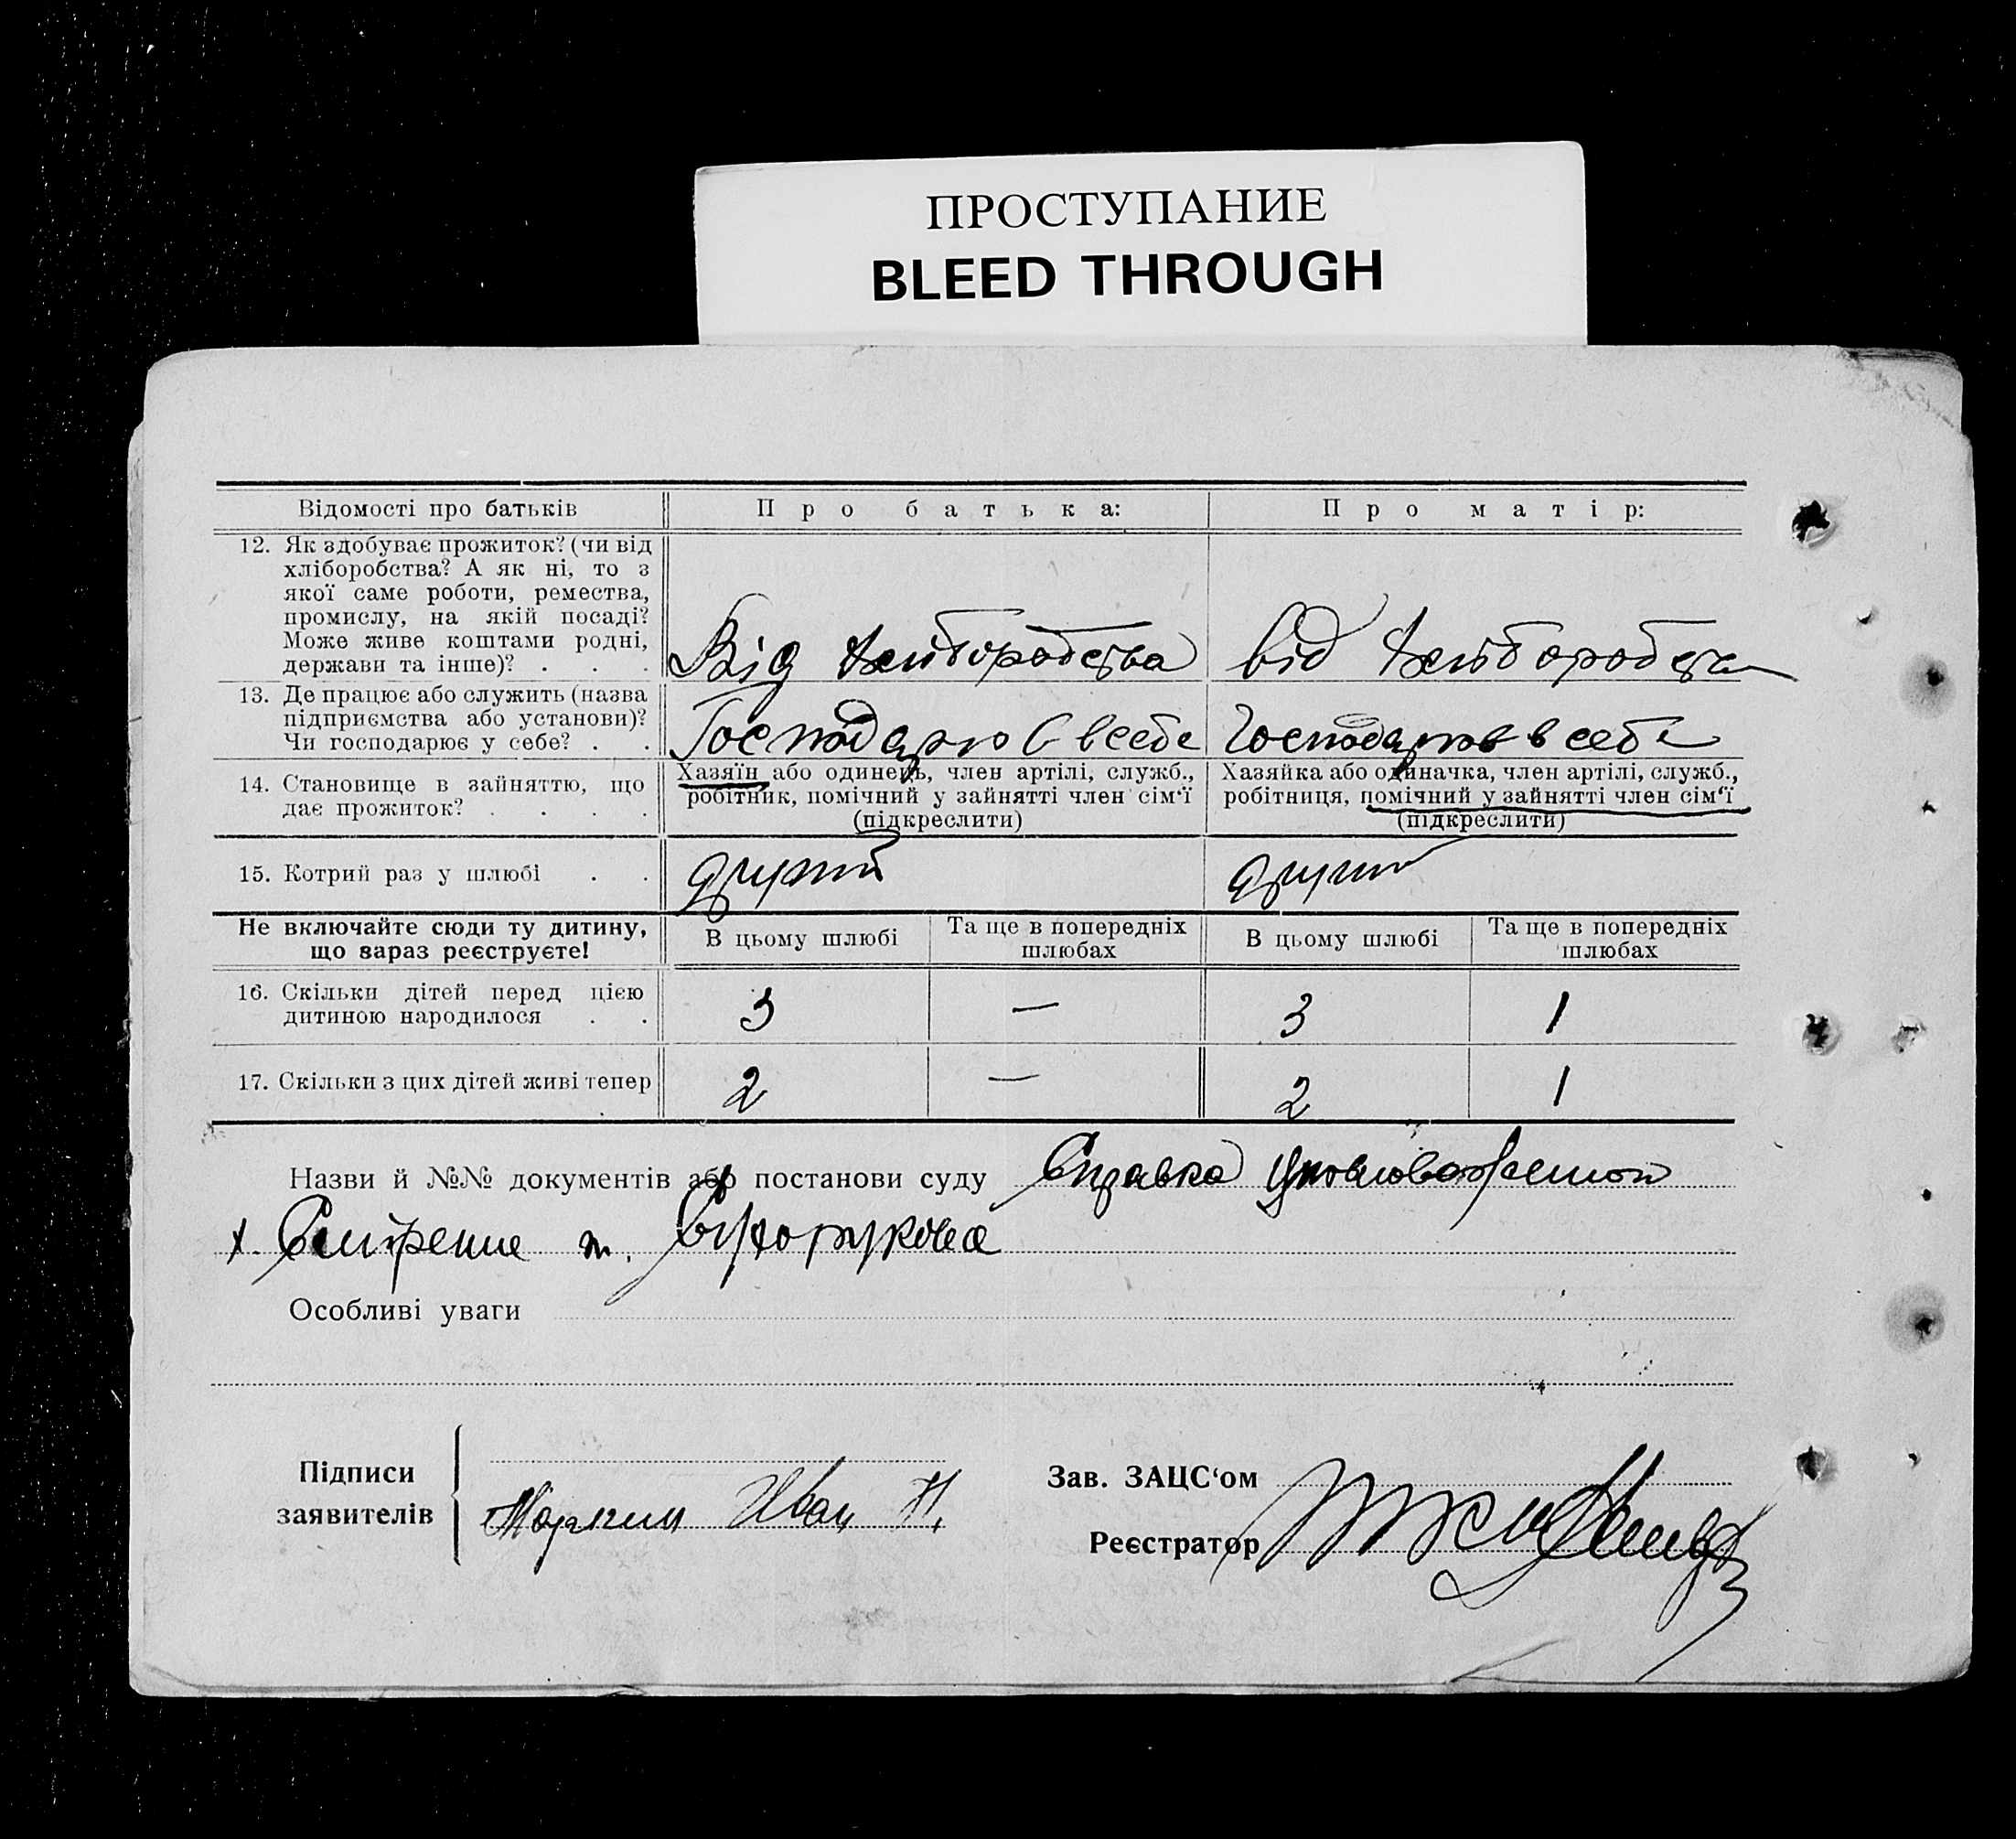 ПРОСТУПАНИЕ
BLEED THROUGH
Відомості про батьків
Про батька:
Про матір:
12. Як здобуває прожиток? (чи від
хліборобства? А як ні, то з
якої саме роботи, ремества,
промислу, на якій посаді?
Може живе коштами родні,
держави та інше)? . . .
Від хліборобства
від хліборобства
13. Де працює або служить (назва
підприємства або установи)?
Чи господарює у себе? . .
Господарю в себе
Господарює в себе
14. Становище в зайняттю, що
дає прожиток? . . . .
Хазяїн або одинець, член артілі, служб.,
робітник, помічний у зайнятті член сім‘ї
(підкреслити)
Хазяйка або одиначка, член артілі, служб.,
робітниця, помічний у зайнятті член сім‘ї
(підкреслити)
15. Котрий раз у шлюбі . .
другий
другий
Не включайте сюди ту дитину,
що зараз реєструєте!
В цьому шлюбі
Та ще в попередніх
шлюбах
В цьому шлюбі
Та ще в попередніх
шлюбах
16. Скільки дітей перед цією
дитиною народилося . .
3 — 3 1
17. Скільки з цих дітей живі тепер
2 — 2 1
Назви й №№ документів або постанови суду Справка
х. т.
Особливі уваги
Підписи
заявителів
Иван Н.
Зав. ЗАЦС‘ом
Реєстратор